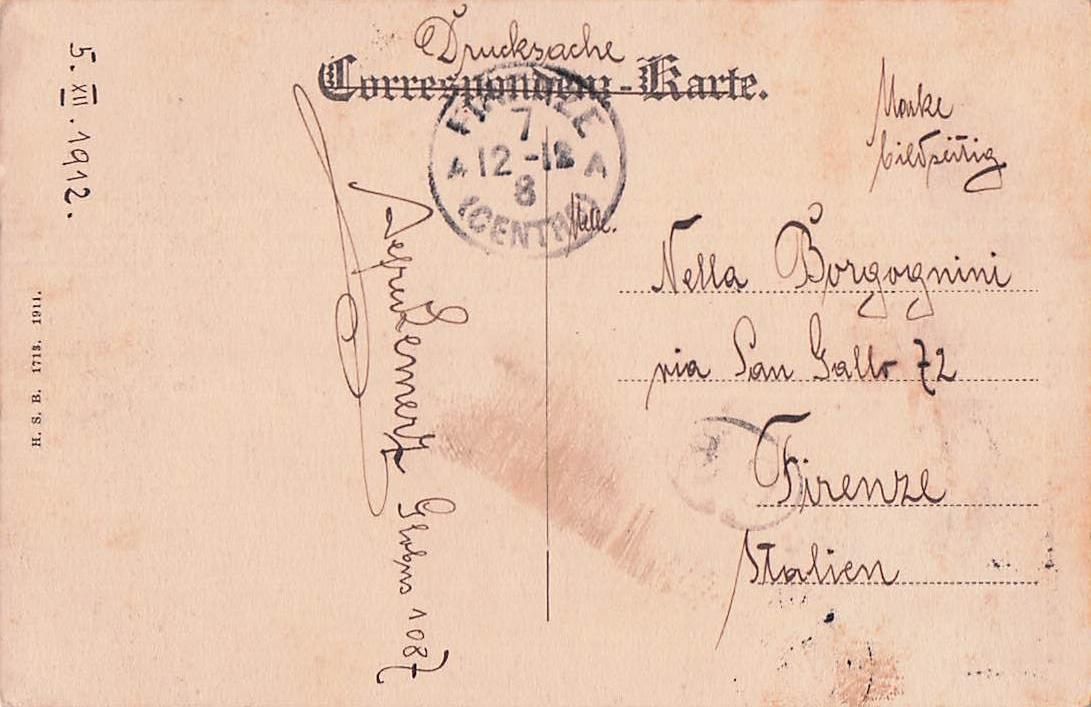 Drucksache
Correspondenz-Karte.
5. XII. 1912.
H. S. B. 1713. 1911.
FIRENZE
7
A 12-12 A
8
(CENTRO)
Marke
bildseitig
Melle.
Nella Borgognini
via San Gallo 72
Firenze
Italien
Lemerz
Globus 1087